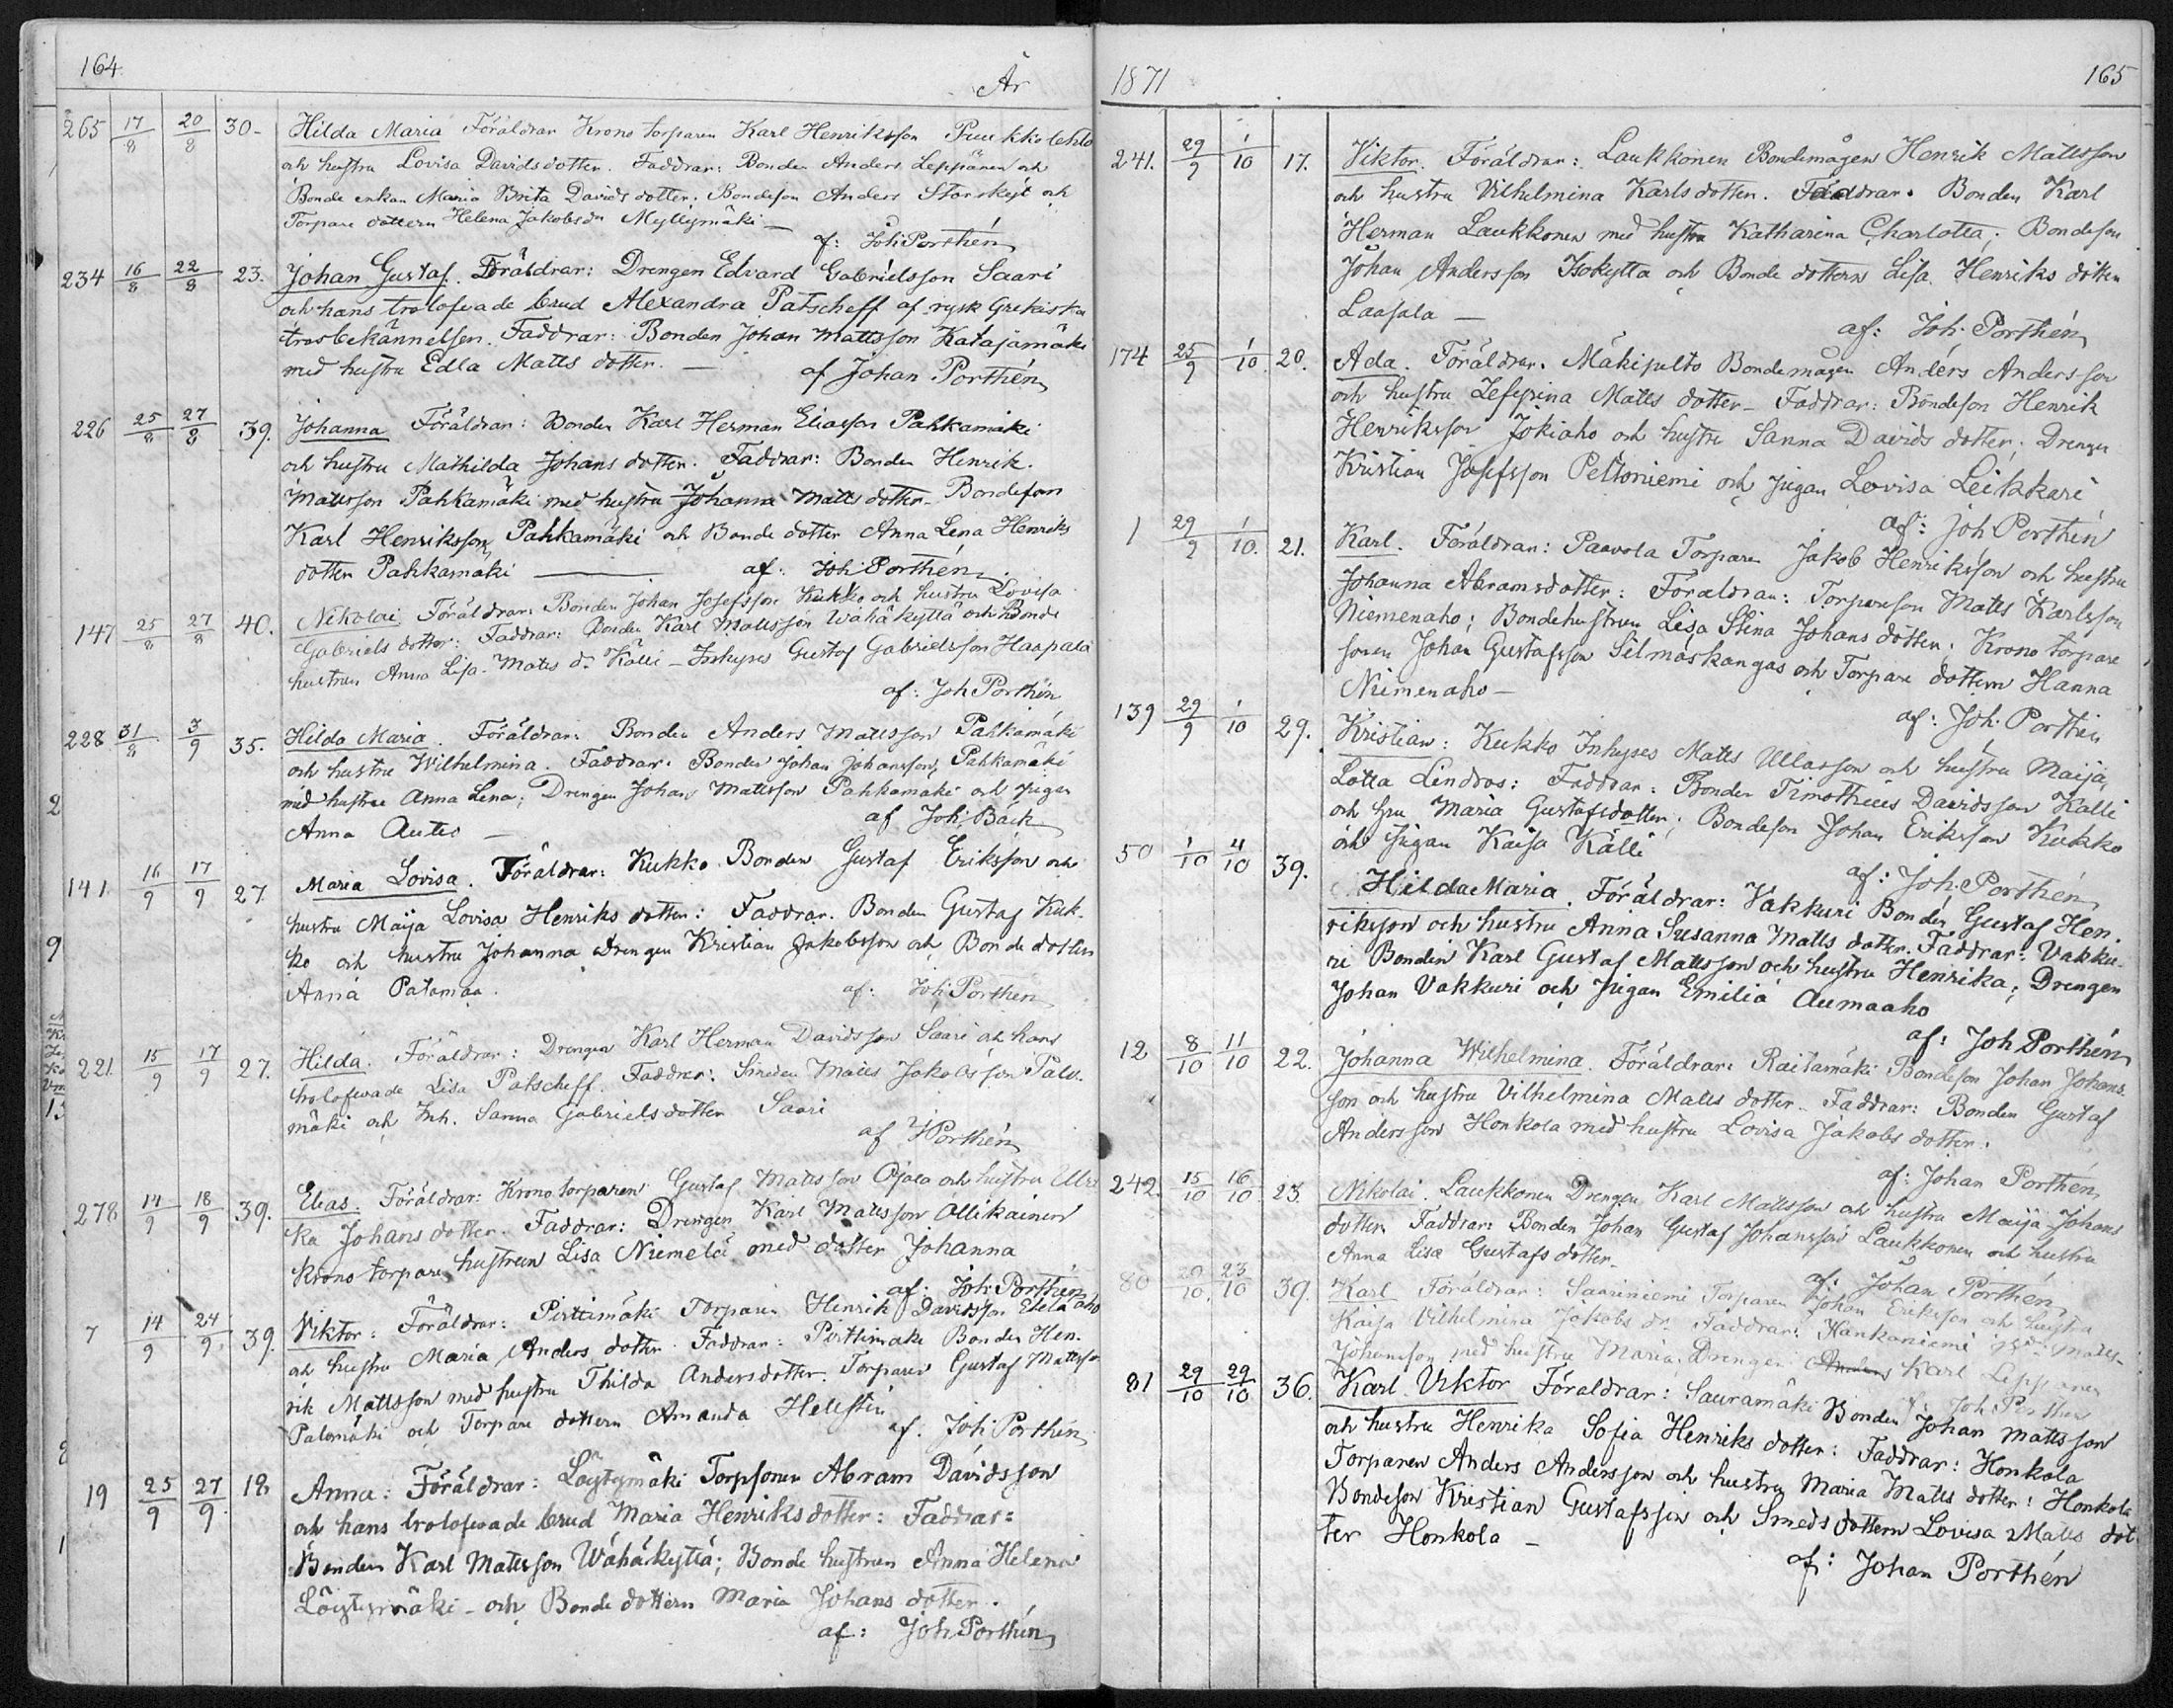 164
År
265 17/8 20/8 30- Hilda Maria Föräldrar Krono torparen Karl Henriksson Puukkolehto
och hustru Lovisa Davidsdotter. Faddrar: Bonden Anders Leppänen och
Bonde enkan Maria Brita Davids dotter; Bondeson Anders och
Torpare dottern Helena Jakobsdr Myllymäki —
af: Joh Porthén
234 16/8 22/8 23. Johan Gustaf. Föräldrar: Drengen Edvard Gabrielsson Saari
och hans trolofvade brud Alexandra Patscheff af rysk Grekiska
trosbekännelsen. Faddrar: Bonden Johan Mattsson Katajamäki
med hustru Edla Matts dotter. —
af Johan Porthén
226 25/8 27/8 39. Johanna Föräldrar: Bonden Karl Herman Eliasson Pahkamäki
och hustru Mathilda Johans dotter. Faddrar: Bonden Henrik.
Mattsson Pahkamäki med hustru Johanna Matts dotter- Bondeson
Karl Henriksson Pahkamäki och Bonde dotter Anna Lena Henriks
dotter Pahkamäki —
af: Joh Porthén
147 25/8 27/8 40. Nikolai Föräldrar: Bonden Johan Josefsson Kukko och hustru Lovisa
Gabriels dotter: Faddrar: Bonden Karl Mattsson Wähäkyttä och Bonde
hustrun Anna Lisa Matts dr Källi - Inhyses Gustaf Gabrielsson Haapala
af: Joh Porthén
228 31/8 3/9 35. Hilda Maria. Föräldrar: Bonden Anders Mattsson Pahkamäki
och hustru Wilhelmina. Faddrar: Bonden Johan Johansson, Pahkamäki
med hustru Anna Lena; Drengen Johan Mattsson Pahkamäki och pigan
Anna Autio —
af Joh: Bäck
141. 16/9 17/9 27. Maria Lovisa. Föräldrar: Kukko Bonden Gustaf Eriksson och
hustru Maija Lovisa Henriks dotter: Faddrar. Bonden Gustaf Kuk-
ko och hustru Johanna Drengen Kristian Jakobsson och Bonde dottern
Anna Patamaa.
af: Joh: Porthén
221. 15/9 17/9 27. Hilda. Föräldrar: Drengen Karl Herman Davidsson Saari och hans
trolofvade Lisa Patscheff. Faddrar: Smeden Matts Jakobsson Palo-
mäki och Inh. Sanna Gabrielsdotter Saari
af J Porthén
278 14/9 18/9 39. Elias. Föräldrar: Krono torparen Gustaf Mattsson Ojala och hustru Ulri
ka Johans dotter. Faddrar: Drengen Karl Mattsson Ollikainen
Krono torpare hustrun Lisa Niemelä med dotter Johanna
af: Joh: Porthén
7 14/9 24/9 39. Viktor: Föräldrar: Pirttimäki Torparen Henrik Davidsson Eteläaho
och hustru Maria Anders dotter. Faddrar: Pirttimäki Bonden Hen-
rik Mattsson med hustru Thilda Andersdotter. Torparen Gustaf Mattsson
Palomäki och Torpare dottern Amanda Hellstin
af. Joh: Porthén
19 25/9 27/9 18. Anna: Föräldrar: Löytymäki Torpsonen Abram Davidsson
och hans trolofvade brud Maria Henriksdotter: Faddrar:
Bonden Karl Mattsson Wähäkyttä; Bonde hustrun Anna Helena
Löytymäki - och Bonde dottern Maria Johans dotter.
af: Joh Porthén
1871
165
241. 29/9 1/10 17. Viktor. Föräldrar: Laukkonen Bondemågen Henrik Mattsson
och hustru Vilhelmina Karlsdotter. Faddrar. Bonden Karl
Herman Laukkonen med hustru Katharina Charlotta; Bondeson
Johan Andersson Isokyttä och Bonde dottern Lisa Henriks dotter
Laasala —
af: Joh Porthén
174 25/9 1/10 20. Ada. Föräldrar: Mäkipelto Bondemågen Anders Andersson
och hustru Matts dotter- Faddrar: Bondeson Henrik
Henriksson Jokiaho och hustru Sanna Davids dotter; Drengen
Kristian Josefsson Peltoniemi och pigan Lovisa Leikkari
af: Joh Porthén
1 29/9 1/10. 21. Karl. Föräldrar: Paavola Torparen Jakob Henriksson och hustru
Johanna Abramsdotter: Föräldrar: Torpareson Matts Karlsson
Niemenaho; Bondehustrun Lisa Stina Johans dotter; Krono torpare
sonen Johan Gustafsson Silmäskangas och Torpare dottern Hanna
Niemenaho —
af: Joh. Porthén
139 29/9 1/10 29. Kristian: Kukko Inhyses Matts Ullasson och hustru Maija,
Lotta Lindros: Faddrar: Bonden Timotheus Davidsson Källi
och hru Maria Gustafsdotter; Bondeson Johan Eriksson Kukko
och pigan Kaisa Källi
af: Joh: Porthén
50 1/10 4/10 39. Hilda Maria. Föräldrar: Vakkuri Bonden Gustaf Hen-
riksson och hustru Anna Susanna Matts dotter. Faddrar: Vakku-
ri Bonden Karl Gustaf Mattsson och hustru Henrika; Drengen
Johan Vakkuri och pigan Emilia Aumaaho
af: Joh Porthén
12 8/10 11/10 22. Johanna Wilhelmina. Föräldrar: Raitamäki Bondeson Johan Johans-
son och hustru Vilhelmina Matts dotter- Faddrar: Bonden Gustaf
Andersson Honkola med hustru Lovisa Jakobs dotter.
af: Johan Porthén
242. 15/10 16/10 23. Nikolai. Laukkonen Drengen Karl Mattsson och hustru Maija Johans
dotter Faddrar: Bonden Johan Gustaf Johansson Laukkonen och hustru
Anna Lisa Gustafs dotter-
af: Johan Porthén
80 20/10. 23/10 39. Karl Föräldrar: Saariniemi Torparen Johan Eriksson och hustru
Kaisa Vilhelmina Jakobs dr. Faddrar: Hankaniemi Matts-
Johansson med hustru Maria; Drengen Anders Karl Leppänen
af: Joh: Porthén
81 29/10 29/10 36. Karl Viktor Föräldrar: Sauramäki Bonden Johan Mattsson
och hustru Henrika Sofia Henriks dotter: Faddrar: Honkola
Torparen Anders Andersson och hustru Maria Matts dotter: Honkola
Bondeson Kristian Gustafsson och Smeds dottern Lovisa Matts dot
ter Honkola —
af: Johan Porthén